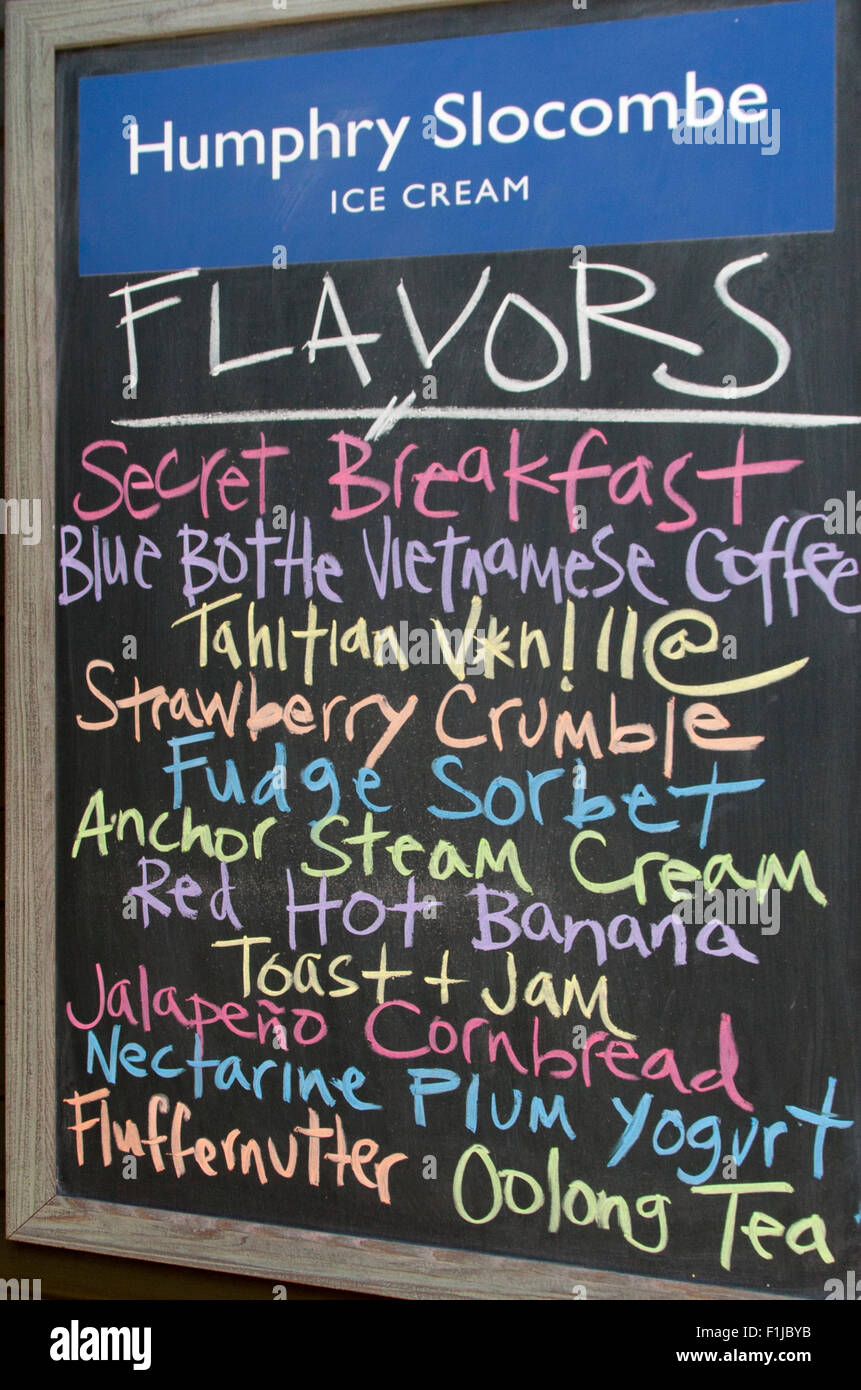 Humphry Slocombe
ICE CREAM
FLAVORS
Secret Breakfast
Blue Bottle Vietnamese Coffee
Tahitian V*n!ll@
Strawberry Crumble
Fudge Sorbet
Anchor Steam Cream
Red Hot Banana
Toast + Jam
Jalapeño Cornbread
Nectarine Plum Yogurt
Fluffernutter Oolong Tea
alamy stock photo
F1JBYB
www.alamy.com